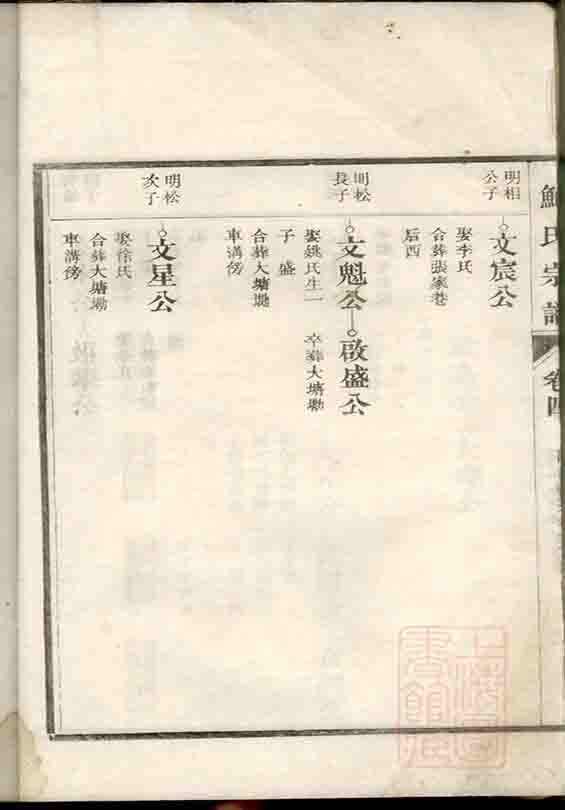 鮑氏宗譜 卷四
明相
公子
文宸公
娶李氏
合葬張家巷
后西
明松
長子
文魁公
啟盛公
娶姚氏生一
子 盛
合葬大塘墈
車溝傍
卒葬大塘墈
明松
次子
文星公
娶徐氏
合葬大塘墈
車溝傍
上海圖
書館藏